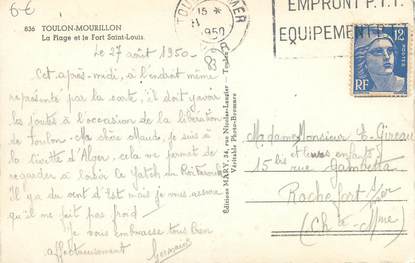 6€
836 TOULON-MOURILLON
La Plage et le Fort Saint-Louis
Le 27 août 1950 -
Cet après-midi, à l'endroit même
représenté par la carte, il doit y avoir
des joutes à l'occasion de la libération
de Toulon. Ma chère Maude, je suis à
la Vicotte d'Alger, cela me permet de
regarder à loisir le Yatch du Roi
Il y a du vent d'Est mais je vous assure
qu'il ne fait pas froid
Je vous embrasse tous bien
affectueusement Germaine
Editions MARY, 24, rue Nicolas-Laugier - Toulon
Véritable Photo-Bromure
TOULON
15 *
1950
EMPRUNT P.T.T.
EQUIPEMENT P.T.T.
12
POSTES
RF
Madame Monsieur E. Gireau
et leurs enfants
15 bis rue Gambetta
Rochefort s/mer
(Ch<sup>te</sup> Mme)